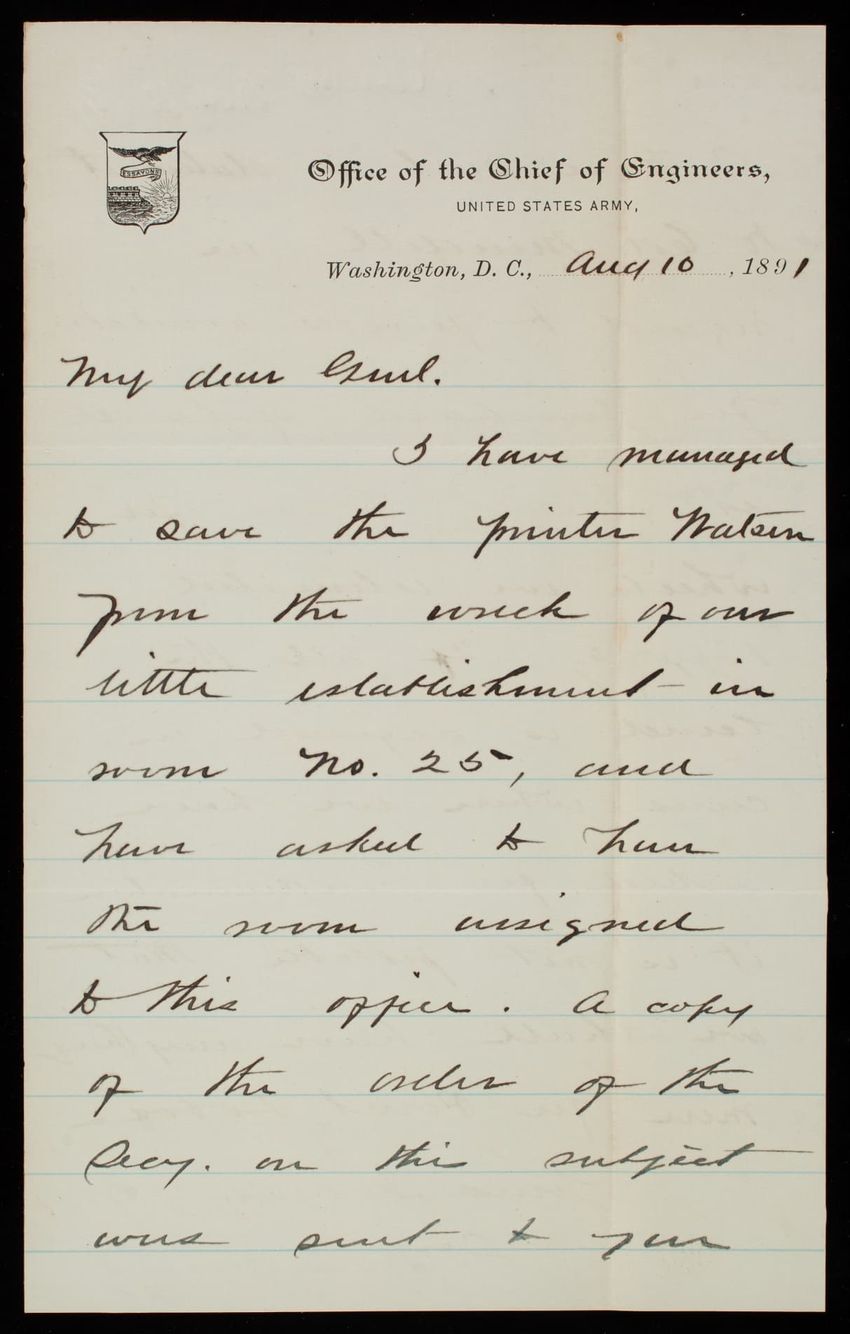 ESSAYONS
Office of the Chief of Engineers,
UNITED STATES ARMY,
Washington, D. C., Aug 10, 1891
My dear Genl.
I have managed
to save the printer Watson
from the wreck of our
little establishment in
room No. 25, and
have asked to have
the room assigned
to this office. A copy
of the order of the
Secy. on this subject
was sent to you